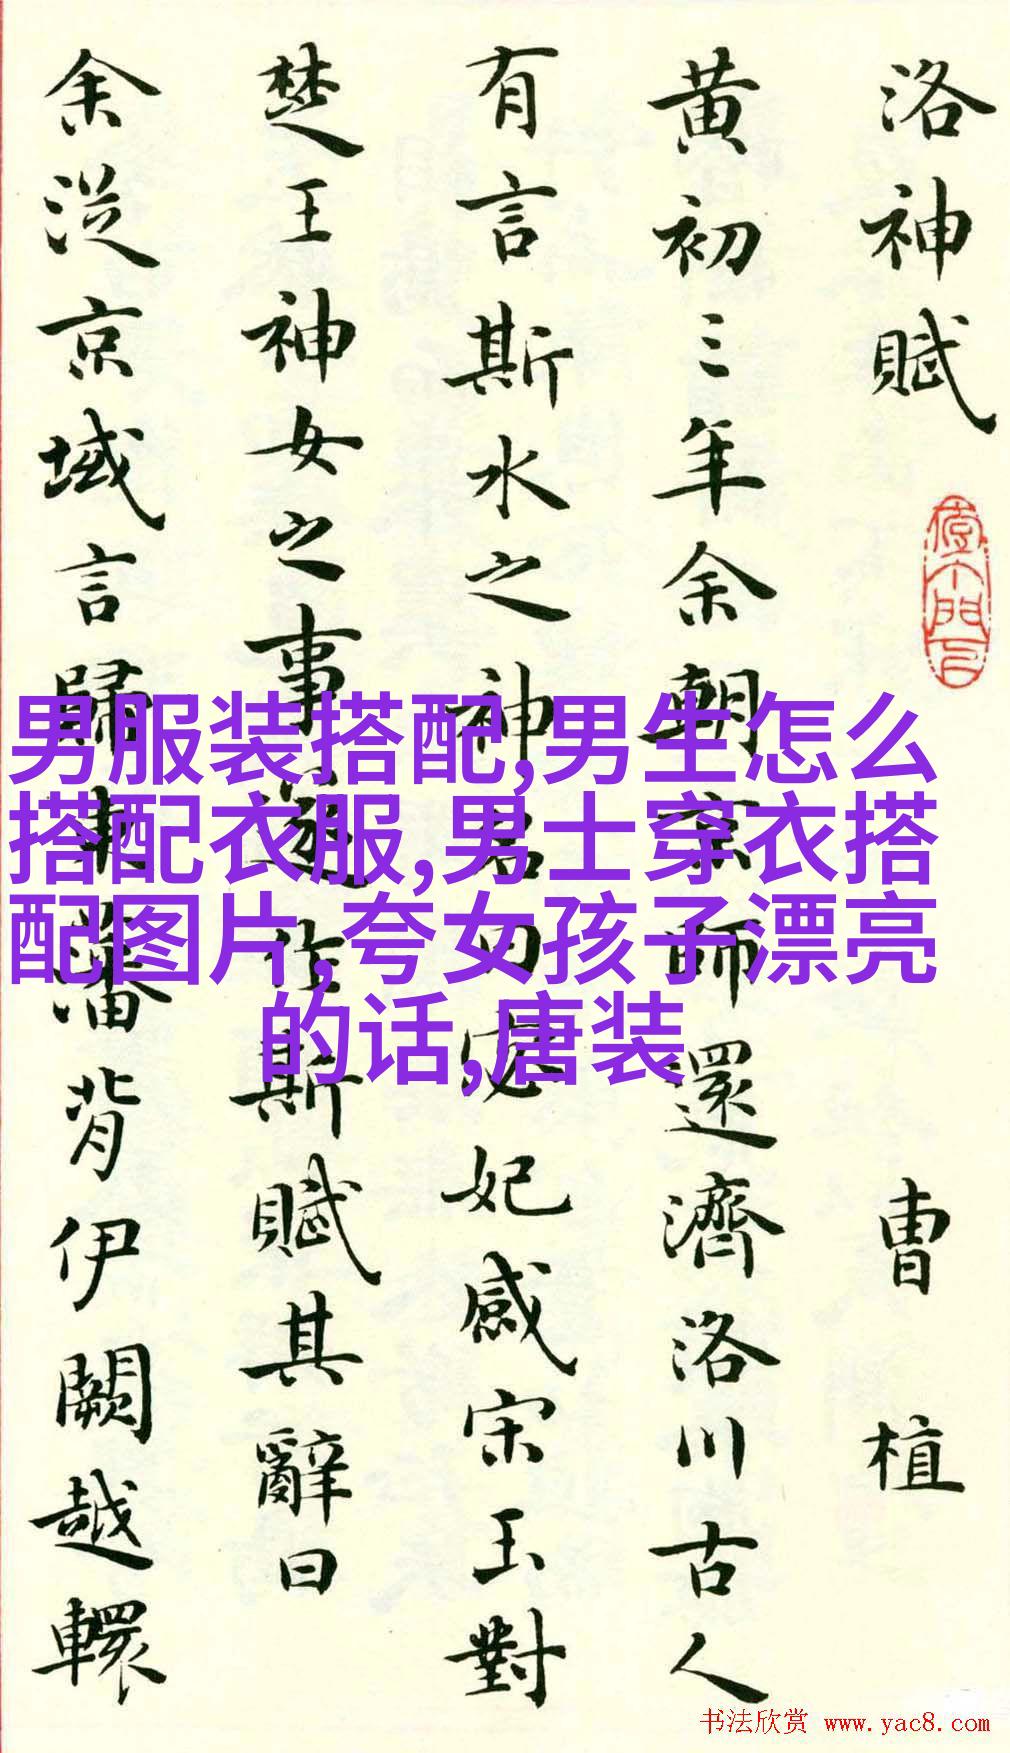 洛神賦
曹植
黄初三年余朝京師還濟洛川古人
有言斯水之神名曰宓妃感宋玉對
楚王神女之事遂作斯賦其辭曰
余從京域言歸東藩背伊闕越轘
男服装搭配,男生怎么
搭配衣服,男士穿衣搭
配图片,夸女孩子漂亮
的话,唐装
书法欣赏 www.yac8.com